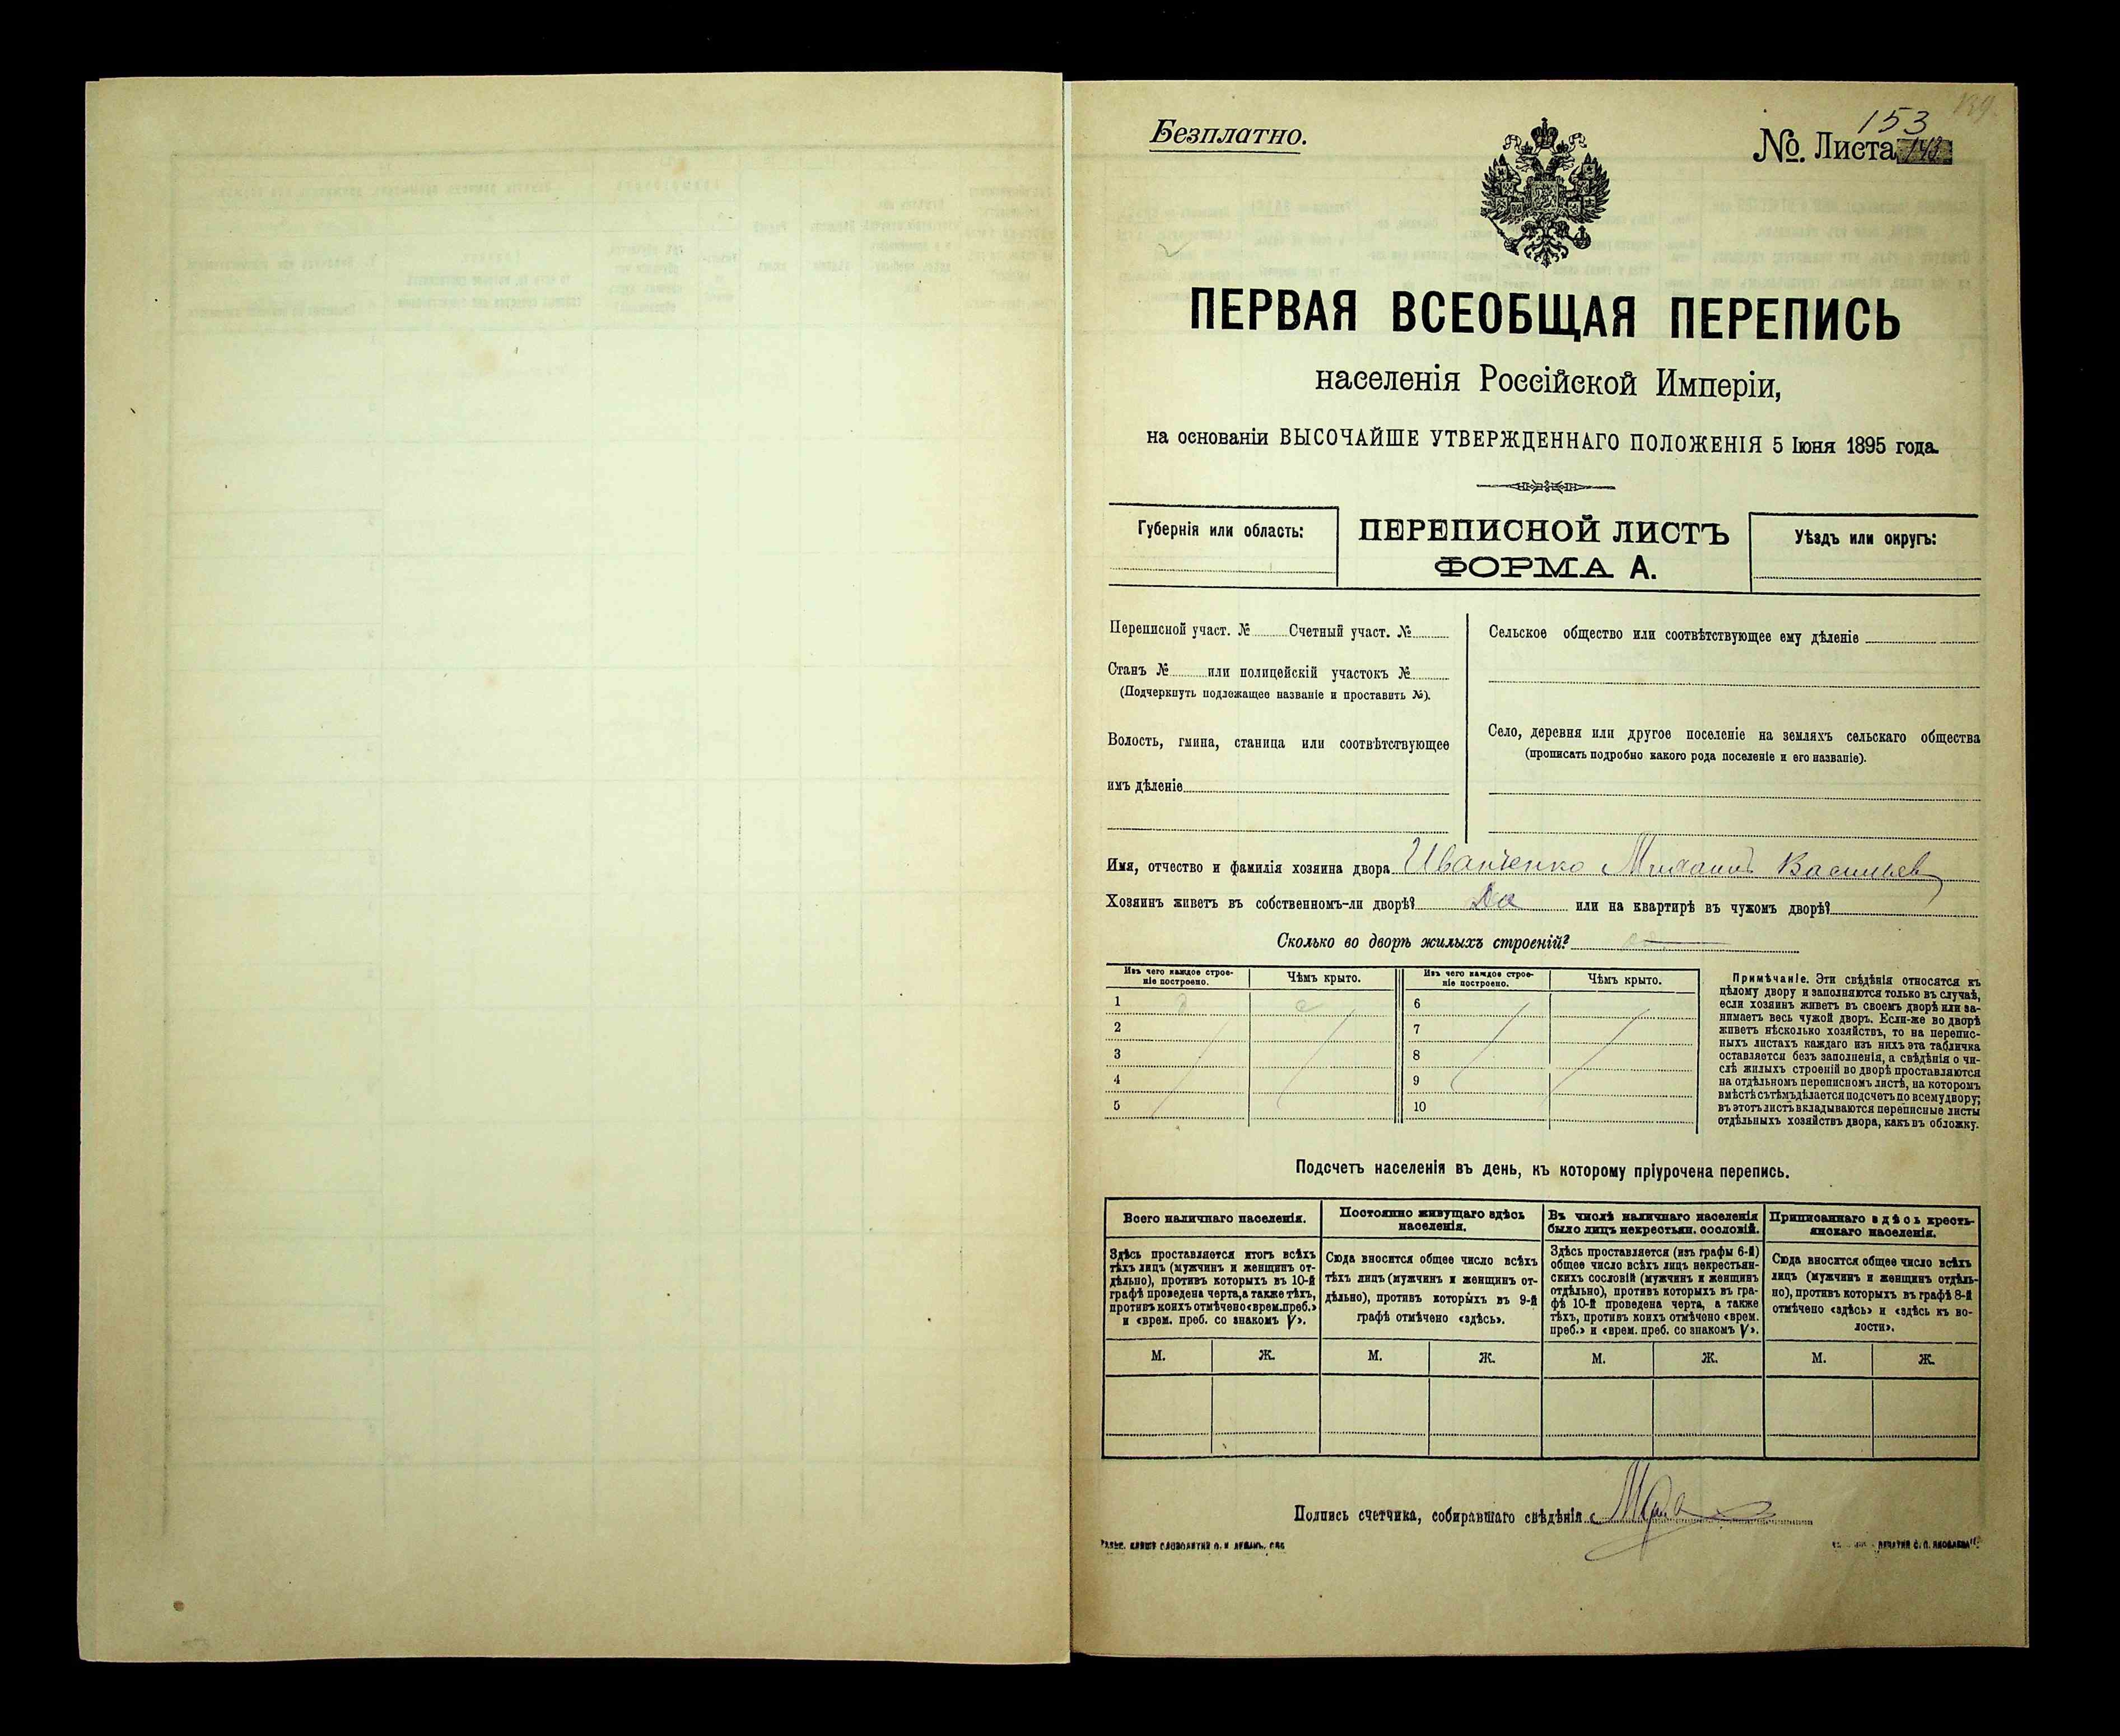 153
Безплатно.
№. Листа
ПЕРВАЯ ВСЕОБЩАЯ ПЕРЕПИСЬ
населенія Россійской Имперіи,
на основаніи ВЫСОЧАЙШЕ УТВЕРЖДЕННАГО ПОЛОЖЕНІЯ 5 Іюня 1895 года.
Губернія или область:
ПЕРЕПИСНОЙ ЛИСТЪ
ФОРМА А.
Уѣздъ или округъ:
Переписной участ. № Счетный участ. №
Станъ № или полицейскій участокъ №
(Подчеркнуть подлежащее названіе и проставить №).
Волость, гмина, станица или соотвѣтствующее
имъ дѣленіе
Сельское общество или соотвѣтствующее ему дѣленіе
Село, деревня или другое поселеніе на земляхъ сельскаго общества
(прописать подробно какого рода поселеніе и его названіе).
Имя, отчество и фамилія хозяина двора Иванченко Михаилъ Васильев
Хозяинъ живетъ въ собственномъ-ли дворѣ? Да или на квартирѣ въ чужомъ дворѣ?
Сколько во дворѣ жилыхъ строеній?
Изъ чего каждое строе-
ніе построено.
Чѣмъ крыто.
Изъ чего каждое строе-
ніе построено.
Чѣмъ крыто.
1
6
2
7
3
8
4
9
5
10
Примѣчаніе. Эти свѣдѣнія относятся къ
цѣлому двору и заполняются только въ случаѣ,
если хозяинъ живетъ въ своемъ дворѣ или за-
нимаетъ весь чужой дворъ. Если-же во дворѣ
живетъ нѣсколько хозяйствъ, то на перепис-
ныхъ листахъ каждаго изъ нихъ эта табличка
оставляется безъ заполненія, а свѣдѣнія о чи-
слѣ жилыхъ строеній во дворѣ проставляются
на отдѣльномъ переписномъ листѣ, на которомъ
вмѣстѣ съ тѣмъ дѣлается подсчетъ по всему двору;
въ этотъ листъ вкладываются переписные листы
отдѣльныхъ хозяйствъ двора, какъ въ обложку.
Подсчетъ населенія въ день, къ которому пріурочена перепись.
Всего наличнаго населенія.
Здѣсь проставляется итогъ всѣхъ
тѣхъ лицъ (мужчинъ и женщинъ от-
дѣльно), противъ которыхъ въ 10-й
графѣ проведена черта, а также тѣхъ,
противъ коихъ отмѣчено «врем. преб.»
и «врем. преб. со знакомъ V».
Постоянно живущаго здѣсь
населенія.
Сюда вносится общее число всѣхъ
тѣхъ лицъ (мужчинъ и женщинъ от-
дѣльно), противъ которыхъ въ 9-й
графѣ отмѣчено «здѣсь».
Въ числѣ наличнаго населенія
было лицъ некрестьян. сословій.
Здѣсь проставляется (изъ графы 6-й)
общее число всѣхъ лицъ некрестьян-
скихъ сословій (мужчинъ и женщинъ
отдѣльно), противъ которыхъ въ гра-
фѣ 10-й проведена черта, а также
тѣхъ, противъ коихъ отмѣчено «врем.
преб.» и «врем. преб. со знакомъ V».
Приписаннаго здѣсь кресть-
янскаго населенія.
Сюда вносится общее число всѣхъ
лицъ (мужчинъ и женщинъ отдѣль-
но), противъ которыхъ въ графѣ 8-й
отмѣчено «здѣсь» и «здѣсь къ во-
лости».
М. Ж. М. Ж. М. Ж. М. Ж.
Подпись счетчика, собиравшаго свѣдѣнія